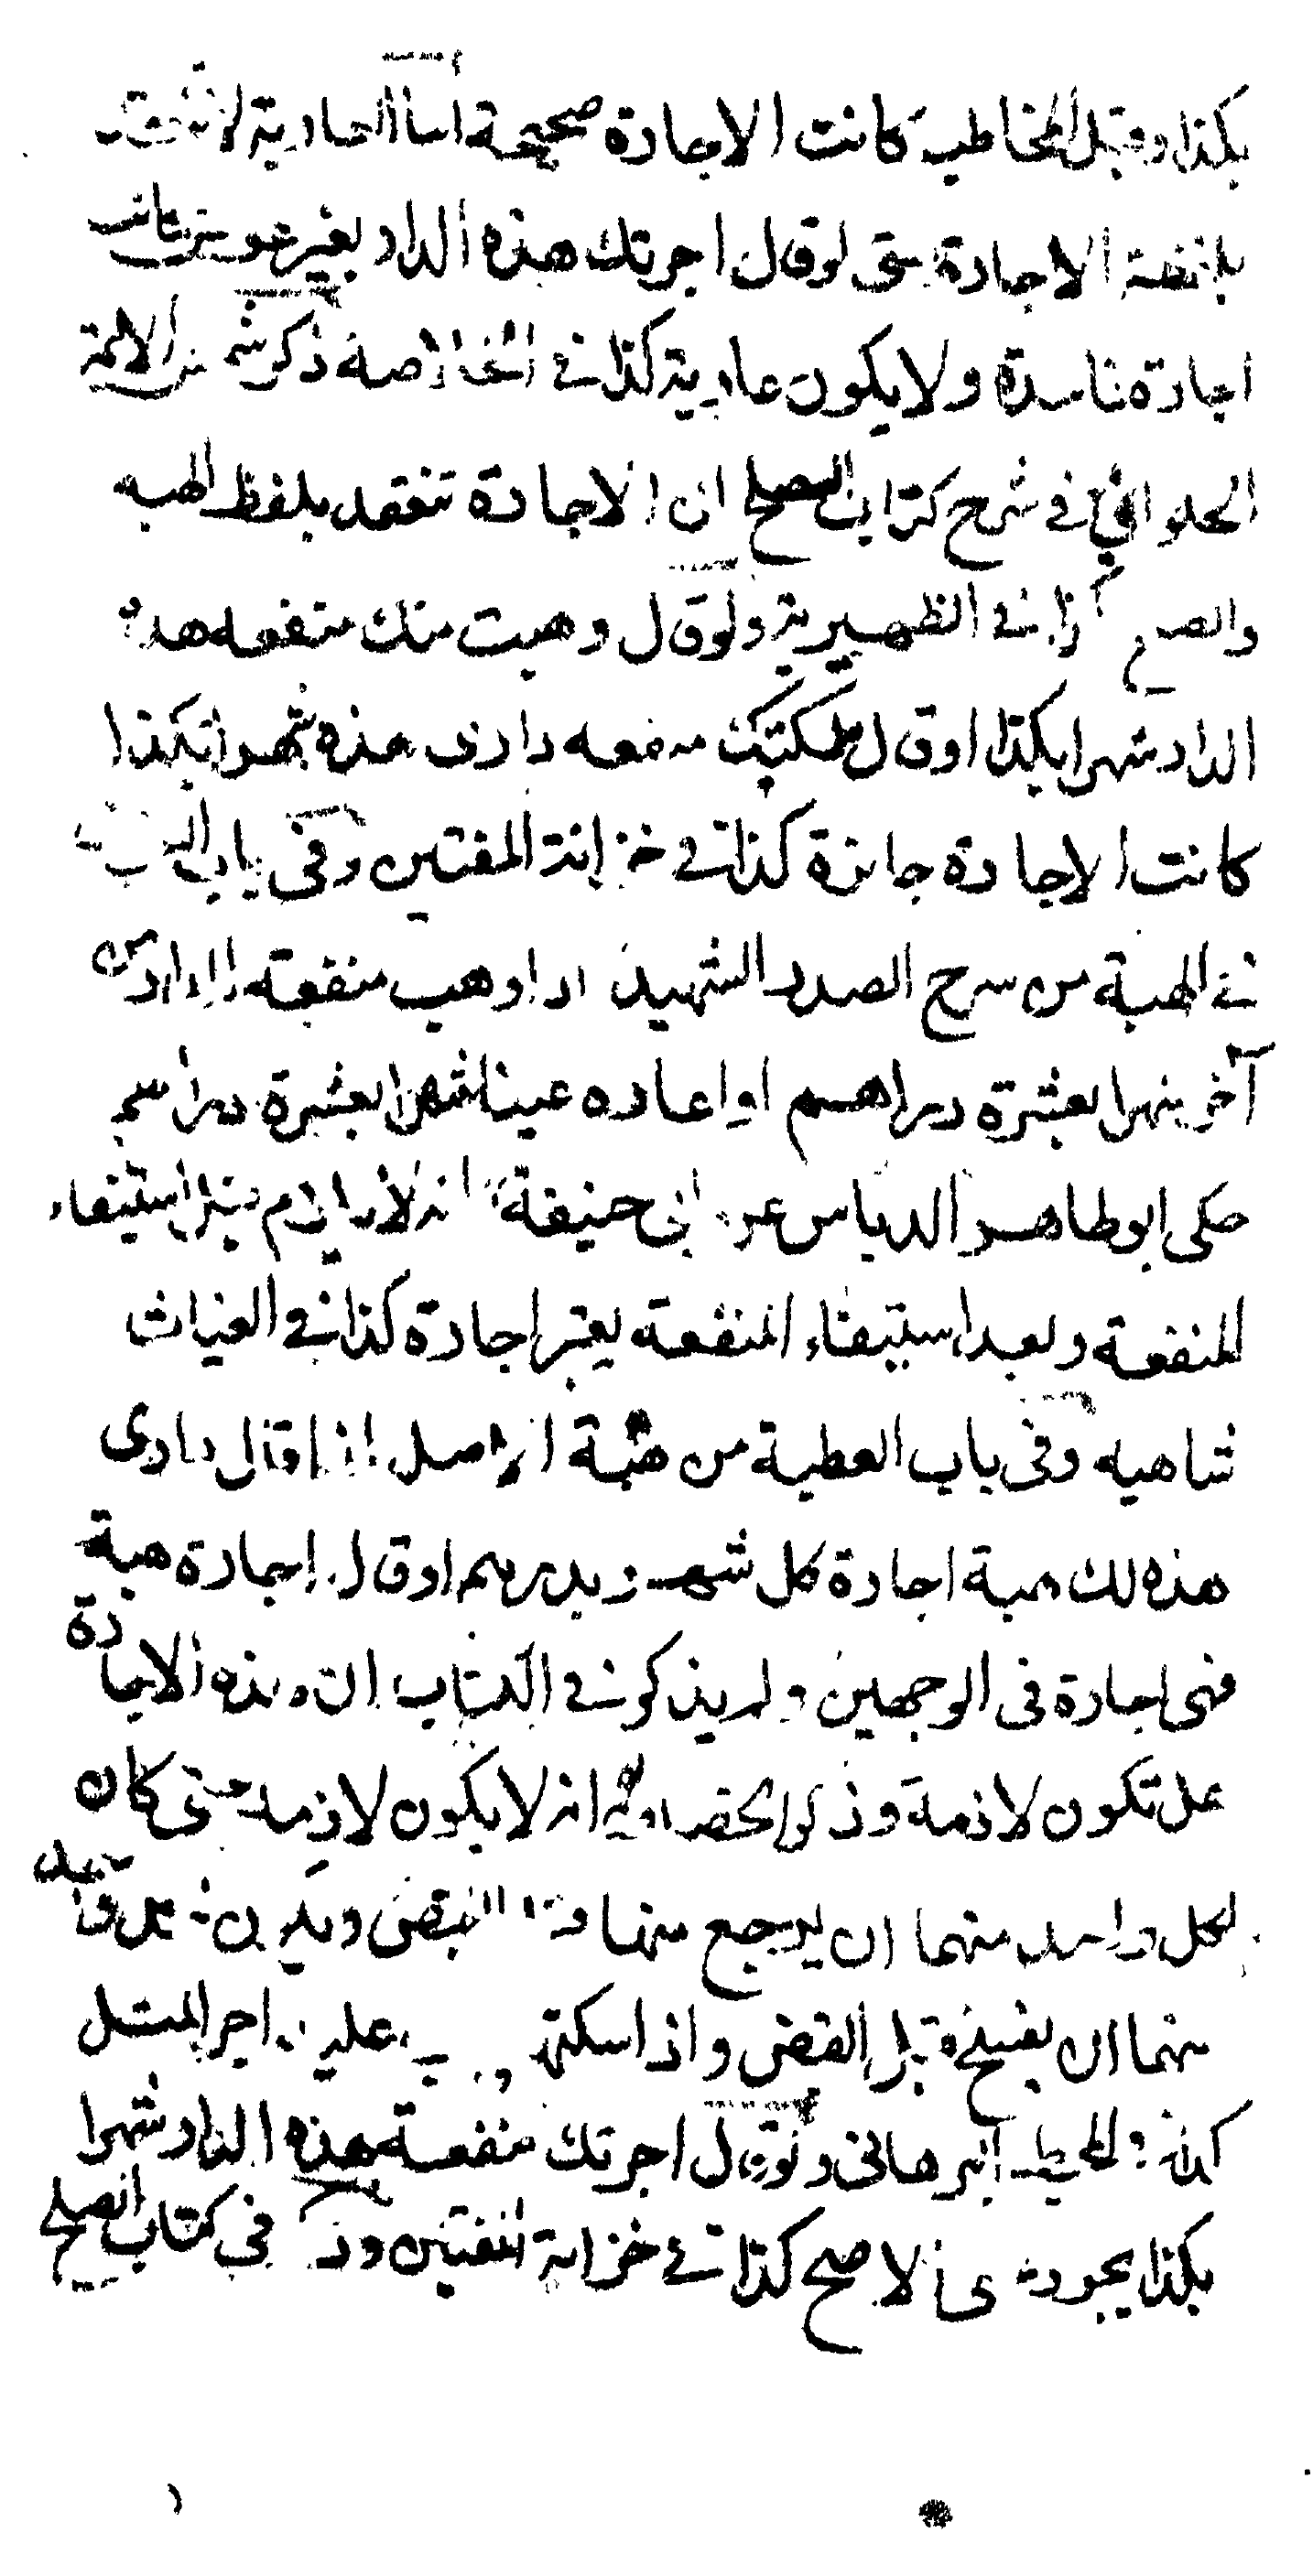 بكذا وقبل المخاطب كانت الاجارة صحيحة اما العارية لا تنعقد
بلفظة الاجارة حتى لو قال اجرتك هذه الدار بغير عوض كانت
اجارة فاسدة ولا يكون عارية كذا في الخلاصة ذكر شمس الائمة
الحلواني في شرح كتاب الصلح ان الاجارة تنعقد بلفظ الهبه
والصلح كذا في الظهيرية ولو قال وهبت منك منفعه هذه
الدار شهرا بكذا او قال ملكتك منفعه داری هذه شهرا بكذا
كانت الاجارة جائزة كذا في خزانة المفتين وفي باب
في الهبة من شرح الصدر الشهيد اذا وهب منفعة الدار من
آخر شهرا بعشرة دراهم او اعاره عينا شهرا بعشرة دراهم
حكى ابو طاهر الدباس عن ابی حنيفة انه لا يلزم قبل استيفاء
المنفعة وبعد استيفاء المنفعة يعتبر اجارة كذا في الغياث
شاهيه وفی باب العطية من هبة الاصل اذا قال داری
هذه لك هبة اجارة كل شهر بدرهم او قال اجارة هبة
فهی اجارة فی الوجهين ولم يذكر في الكتاب ان هذه الاجارة
هل تكون لازمة وذكر الخصاف انه لا يكون لازمة حتى كان
لكل واحد منهما ان يرجع منها قبل القبض ويكون لكل واحد
منهما ان يفسخ قبل القبض واذا سكنها يجب عليه اجر المثل
كذا في المحيط البرهانی ولو قال اجرتك منفعة هذه الدار شهرا
بكذا يجوز على الاصح كذا في خزانة المفتين وذكر فی كتاب الصلح